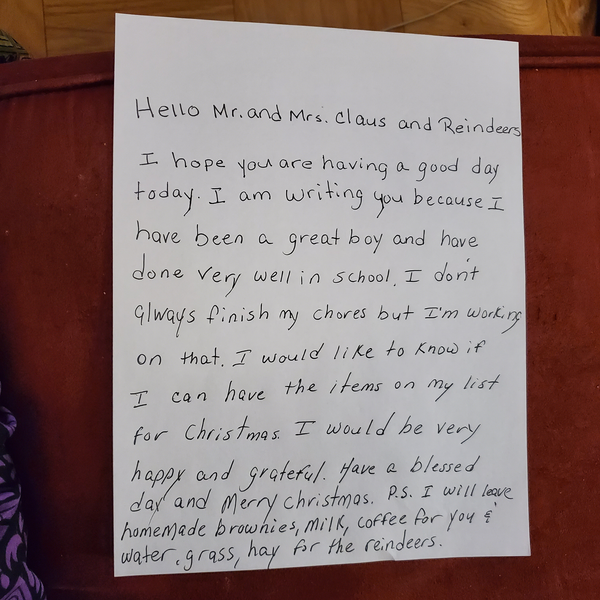 Hello Mr. and Mrs. Claus and Reindeers
I hope you are having a good day
today. I am writing you because I
have been a great boy and have
done very well in school. I don't
always finish my chores but I'm working
on that. I would like to know if
I can have the items on my list
for Christmas. I would be very
happy and grateful. Have a blessed
day and Merry Christmas. P.S. I will leave
homemade brownies, milk, coffee for you &
water, grass, hay for the reindeers.